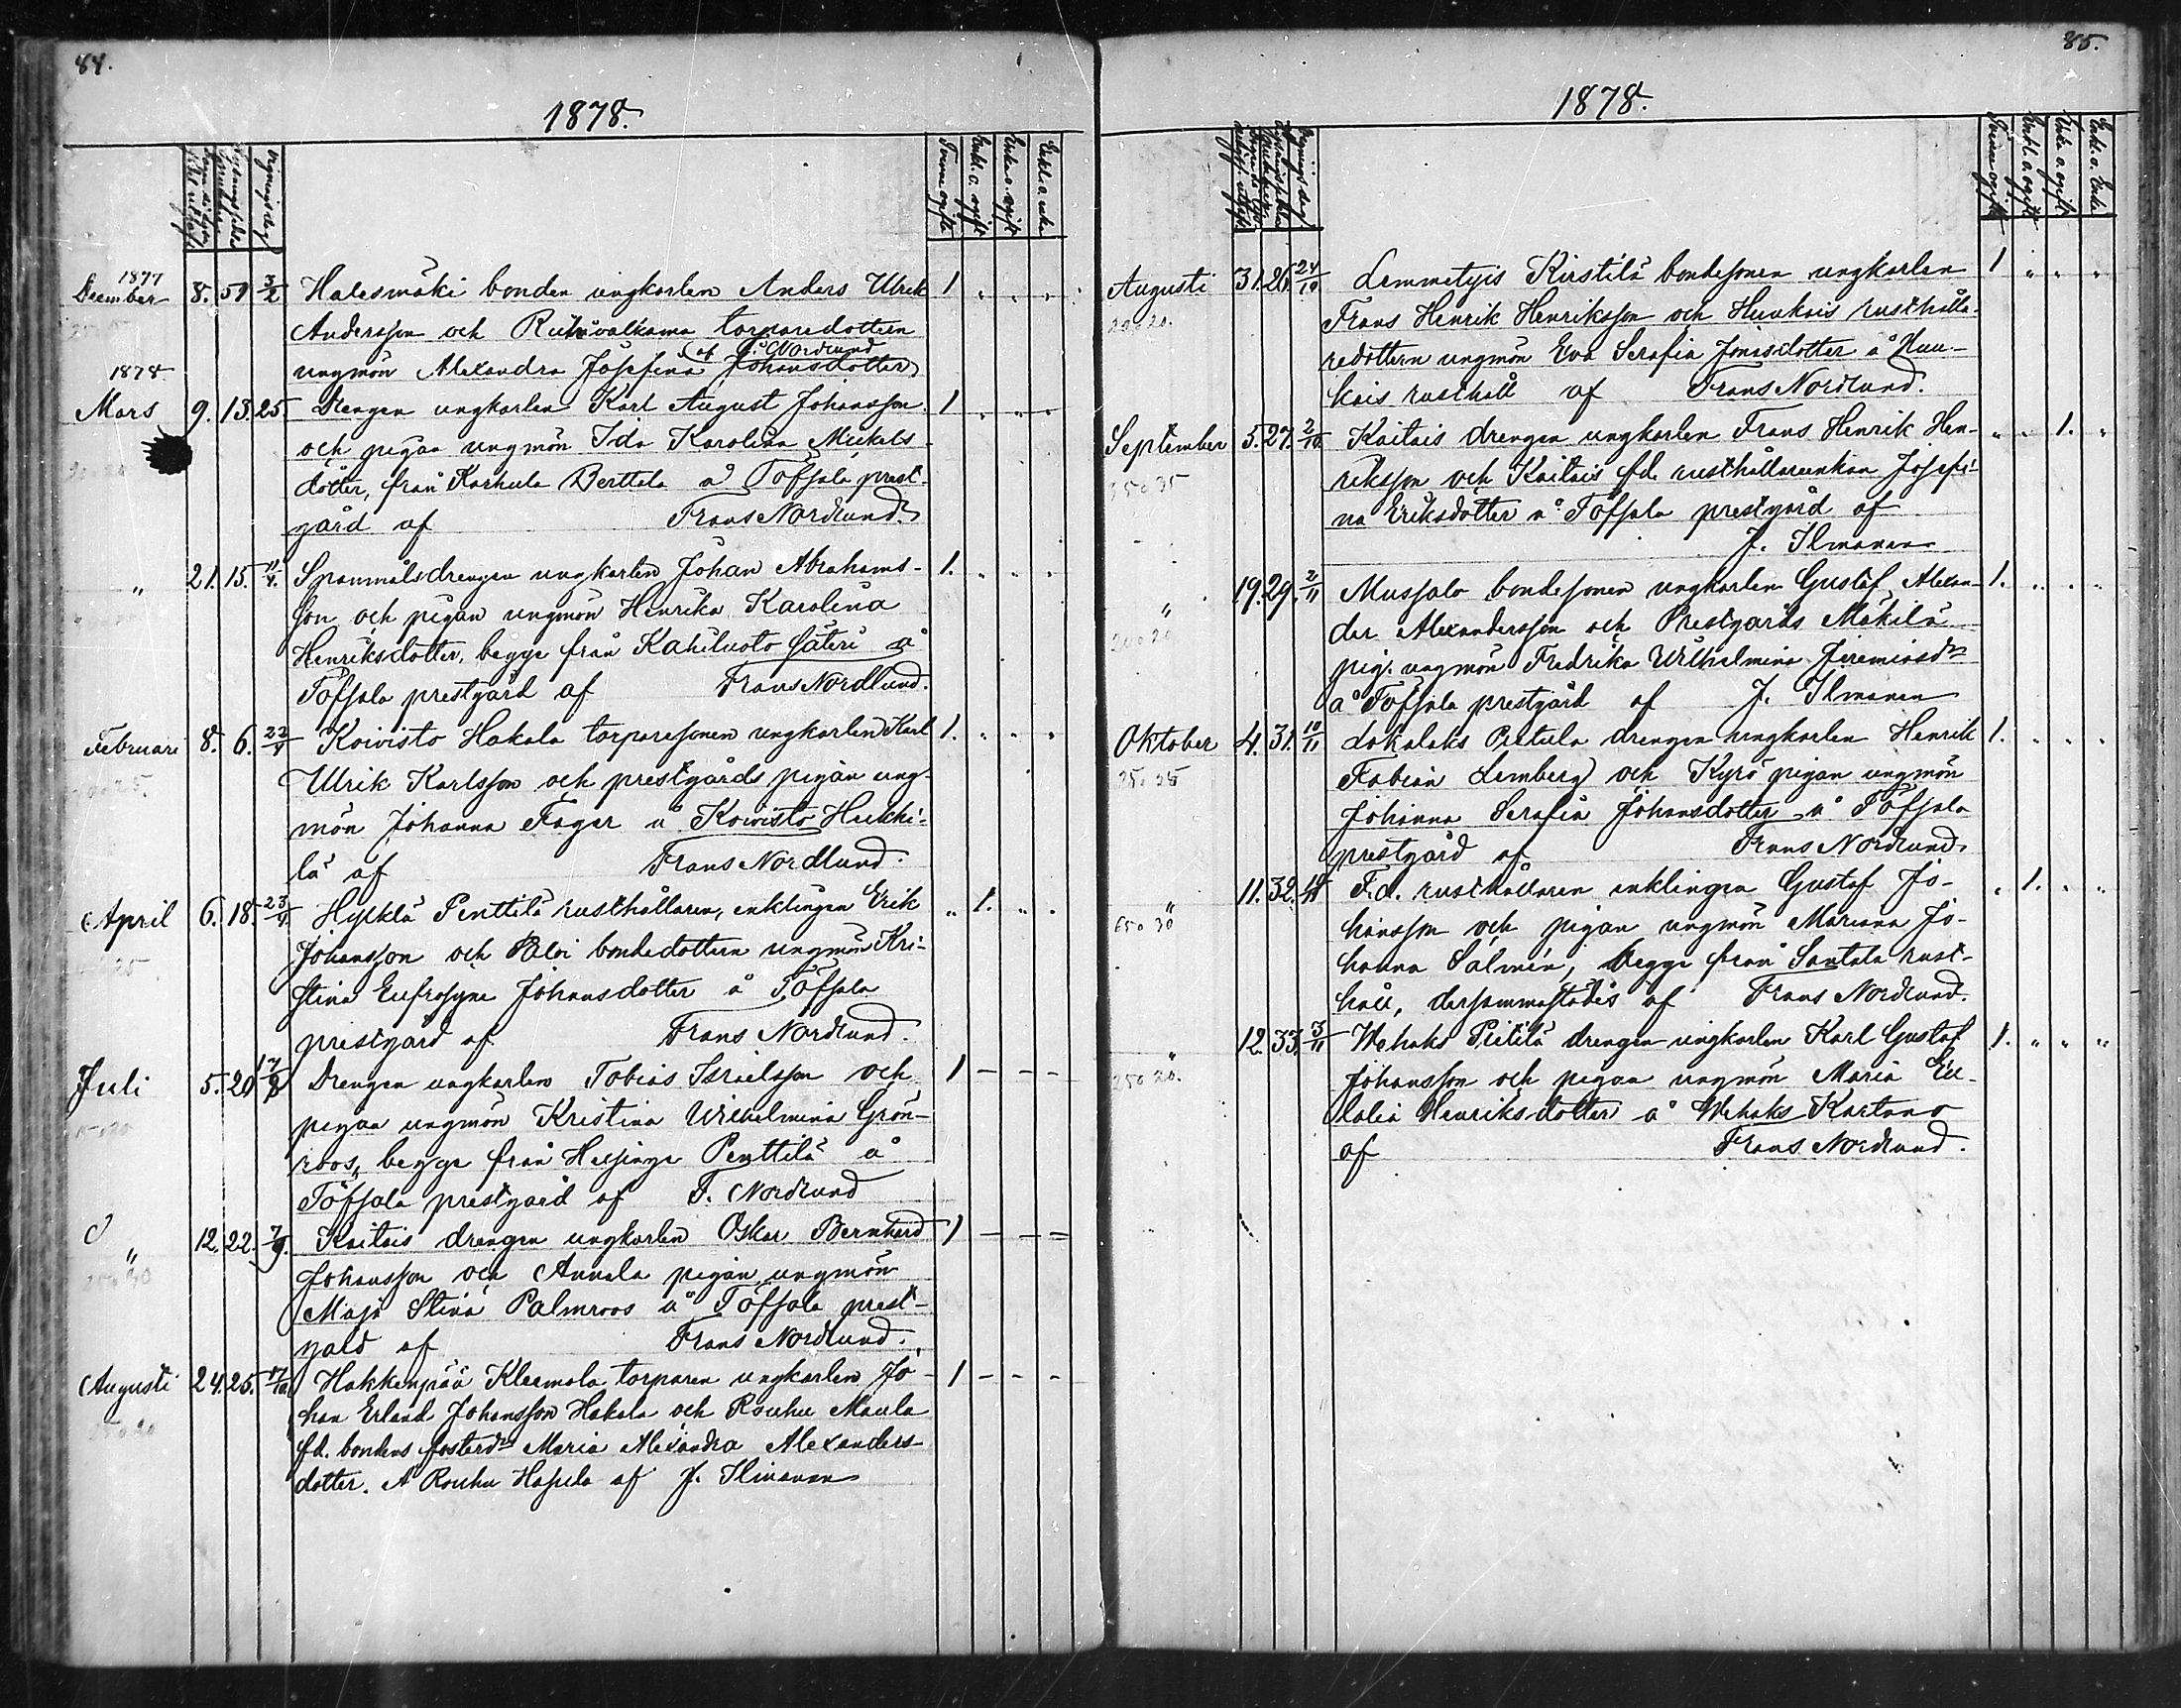 84.
1878.
Vigningsdag
Tvenne ogifta
Enkl. o. ogift
Enka o. ogift
Enkl. o. enka
1877
December 8. 51 3/2 Halesmäki bonden ungkarlen Anders Ulrik 1 „ „ „
Andersson och torparedottern
af F. Nordlund
ungmön Alexandra Josefina Johansdotter
1878
Mars 9. 13. 25. Drengen ungkarlen Karl August Johansson 1 „ „ „
och pigan ungmön Ida Karolina Mickels-
dotter, från Karhula Berttala å Töfsala prest-
gård af Frans Nordlund.
„ 21. 15. 11/4. Spanmålsdrengen ungkarlen Johan Abrahams- 1. „ „ „
son och pigan ungmön Henrika Karolina
Henriksdotter, begge från Kahiluoto säteri å
Töfsala prestgård af Frans Nordlund.
Februari 8. 6. 22/4 Koivisto Hakala torparesonen ungkarlen Karl 1. „ „ „
Ulrik Karlsson och prestgårds pigan ung-
mön Johanna Fager å Koivisto Heikki-
lä af Frans Nordlund.
April 6. 18. 23/4 Hypklä Penttilä rusthållaren, enklingen Erik „ 1. „ „
Johansson och bondedottern ungmön Kri-
stina Eufrosyne Johansdotter å Töfsala
prestgård af Frans Nordlund.
Juli 5. 20 17/8 Drengen ungkarlen Tobias Israelsson och 1 – – –
pigan ungmön Kristina Wilhelmina Grön-
roos, begge från Helsinge Penttilä å
Töfsala prestgård af F. Nordlund
„ 12. 22. 7/9. Kaitais drengen ungkarlen Oskar Bernhard 1 – – –
Johansson och Annala pigan ungmön
Maja Stina Palmroos å Töfsala prest-
gård af Frans Nordlund.
Augusti 24. 25. Hakkenpää Kleemola torparen ungkarlen Jo- 1 – – –
han Erland Johansson Hakala och Rouhu Maula
fd. bondens fosterdr Maria Alexandra Alexanders-
dotter. A Rouhu Hapila af J. Ilmanen
85.
1878.
Vigningsdag
Tvenne ogifta
Enkl. o. ogift
Enka o. ogift
Enkl. o. Enka
Augusti 31. 26. 24/10 Lemmetyis Kirstilä bondesonen ungkarlen 1 „ „ „
20 20.
Frans Henrik Henriksson och Hunkais rusthålla-
redottern ungmön Eva Serafia Jonasdotter å Hun-
kais rusthåll af Frans Nordlund.
September 5. 27. 2/10 Kaitais drengen ungkarlen Frans Henrik Hen- „ „ 1. „
35 o 35
riksson och Kaitais fd. rusthållareenkan Josefi-
na Eriksdotter å Töfsala prestgård af
J. Ilmanen
„ 19. 29. 2/11 Mussalo bondesonen ungkarlen Gustaf Alexan- 1. „ „ „
20 o 20
der Alexandersson och Prestgårds Mäkilä
pig. ungmön Fredrika Wilhelmina Jeremiasdr
å Töfsala prestgård af J. Ilmanen
Oktober 4. 31. 10/11 Lokalaks Pietula drengen ungkarlen Henrik 1. „ „ „
25 o 25
Fabian Lemberg och Kyrö pigan ungmön
Johanna Serafia Johansdotter å Töfsala
prestgård af Frans Nordlund.
„ 11. 32. F.d. rusthållaren enklingen Gustaf Jo- „ 1. „ „
65 o 30
hansson och pigan ungmön Mariana Jo-
hanna Salmén, begge från Santala rust-
håll, dersammastädes af Frans Nordlund.
„ 12. 33. 3/11 Wehaks Pietilä drengen ungkarlen Karl Gustaf 1. „ „ „
25 o 20.
Johansson och pigan ungmön Maria Eu-
lalia Henriksdotter å Wehaks Kartano
af Frans Nordlund.